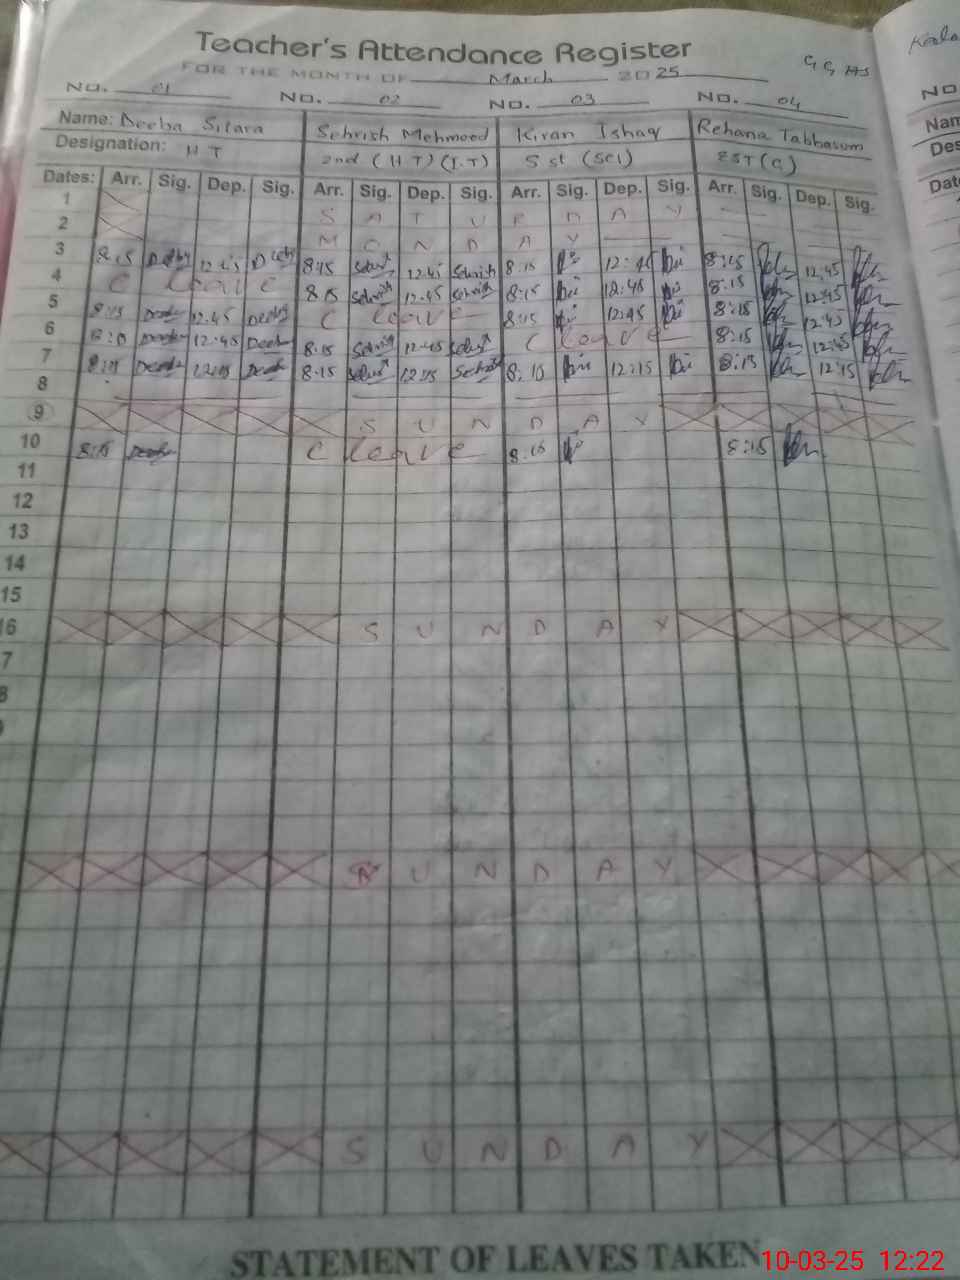 Teacher's Attendance Register
FOR THE MONTH OF March 2025 GGHS
NO. 01 NO. 02 NO. 03 NO. 04 NO
Name: Deeba Sitara Sehrish Mehmood Kiran Ishaq Rehana Tabbasum Nam
Designation: HT 2nd (HT) (I.T) Sst (Sci) EST (C) Des
Dates: Arr. Sig. Dep. Sig. Arr. Sig. Dep. Sig. Arr. Sig. Dep. Sig. Arr. Sig. Dep. Sig. Date
1 S A T U R D A Y
2 M O N D A Y
3 8:15 12:45 8:15 12:45 Sehrish 8:15 12:45 8:15 12:45
4 C leave 8:15 Sehrish 12:45 Sehrish 8:15 12:45 8:15 12:45
5 8:15 12:45 C leave 8:15 12:45 8:15 12:45
6 12:45 8:15 12:45 C leave 8:15 12:45
7 8:15 12:15 8:15 12:15 8:10 12:15 8:15 12:15
8
9 S U N D A Y
10 8:15 C leave 8:15 8:15
11
12
13
14
15
16 S U N D A Y
7
8
9
S U N D A Y
S U N D A Y
STATEMENT OF LEAVES TAKEN
10-03-25 12:22